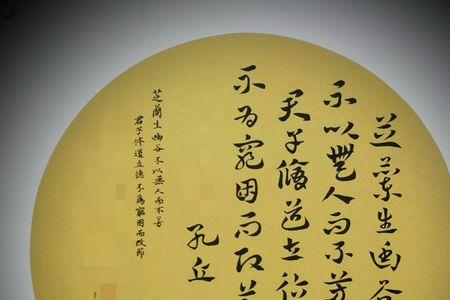 芝蘭生幽谷
不以無人而不芳
君子修道立德
不为窮困而改節
孔丘
芝蘭生幽谷不以無人而不芳
君子修道立德不為窮困而改節